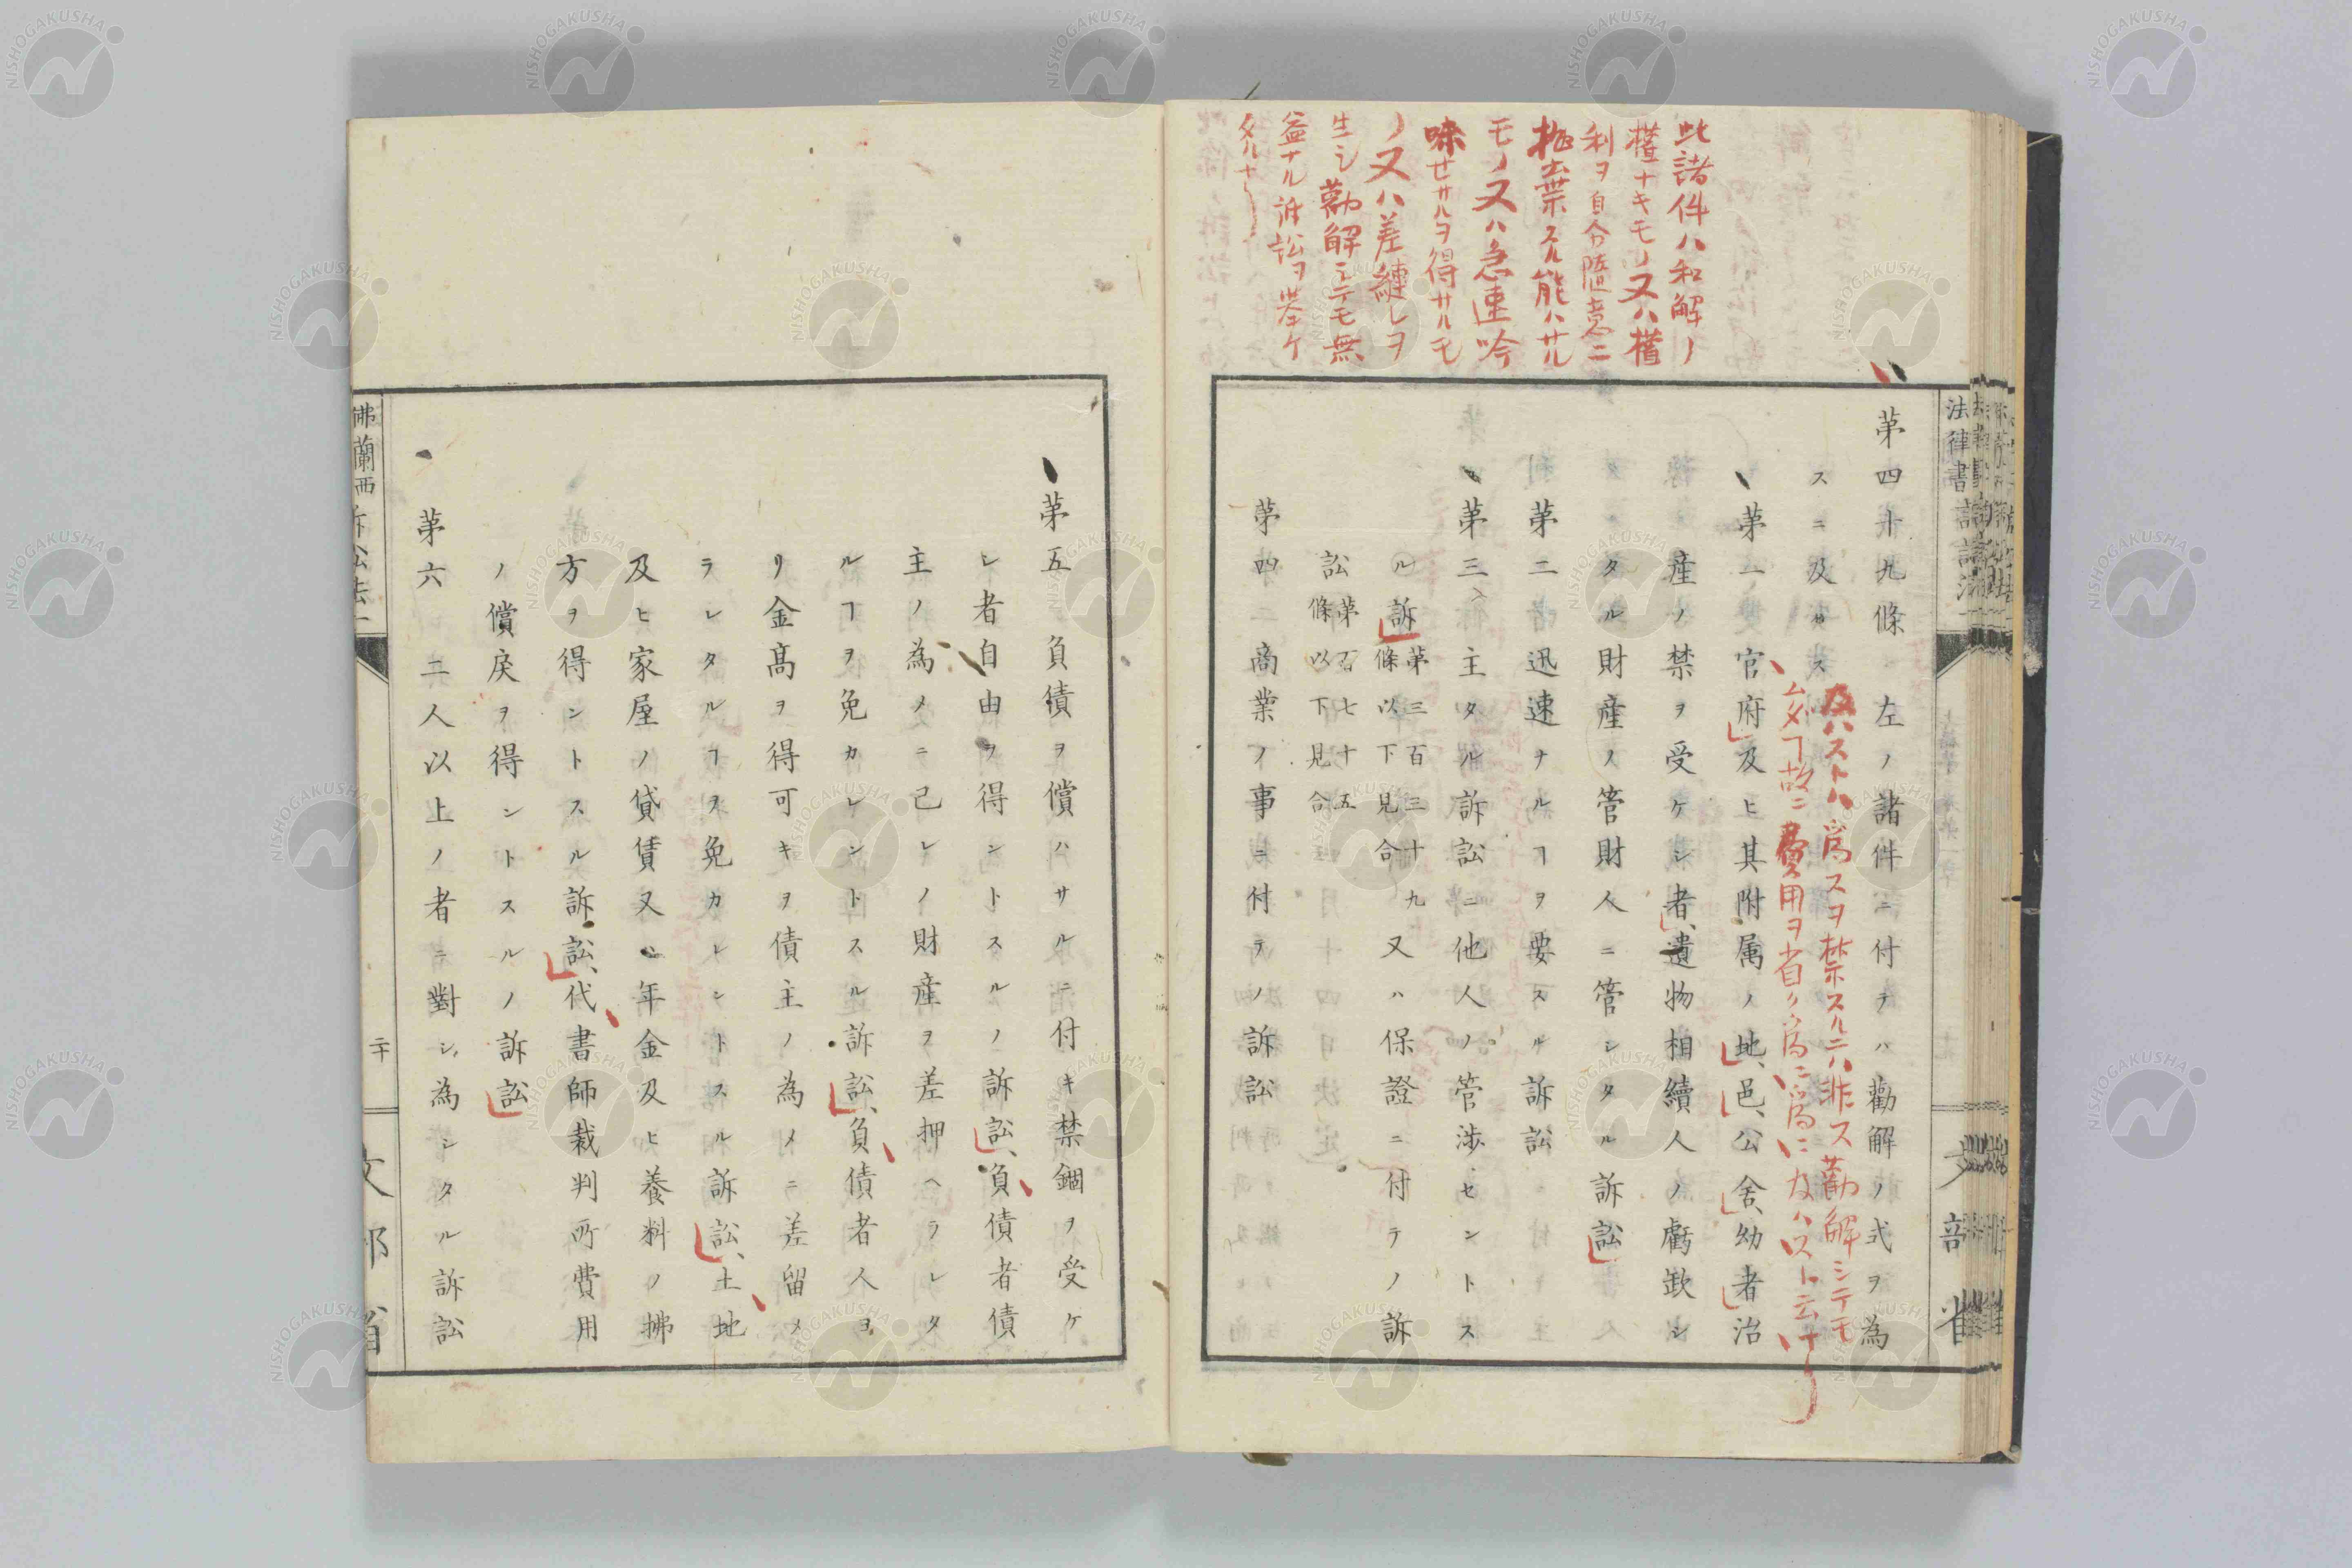 此諸件ハ和解ノ
権ナキモノ又ハ権
利ヲ自分随意ニ
抛棄スル能ハサル
モノ又ハ急速吟
味セサルヲ得サルモ
ノ又ハ差縺レヲ
生シ勸解シテモ無
益ナル訴訟ヲ挙ケ
タルナリ
法律書
文部省
第四十九條 左ノ諸件ニ付テハ勸解ノ式ヲ為
スニ及ハス
及ハストハ為スヲ禁スルニハ非ス勸解シテモ
故ニ費用ヲ省ク為ニ為ニ及ハスト云ナリ
第一 官府及ヒ其附属ノ地、邑、公舍、幼者治
産ノ禁ヲ受ケシ者、遺物相續人ノ虧缺シ
タル財産ノ管財人ニ管シタル訴訟
第二 迅速ナルヿヲ要スル訴訟
第三 主タル訴訟ニ他人ノ管渉セントス
ル訴第三百三十九條以下見合 又ハ保證ニ付テノ訴
訟第百七十五條以下見合
第四 商業ノ事ニ付テノ訴訟
第五 負債ヲ償ハサルニ付キ禁錮ヲ受ケ
シ者自由ヲ得ントスルノ訴訟、負債者債
主ノ為メニ己レノ財産ヲ差押ヘラレタ
ルヿヲ免カレントスル訴訟、負債者人ヨ
リ金高ヲ得可キヲ債主ノ為メニ差留メ
ラレタルヿヲ免カレントスル訴訟、土地
及ヒ家屋ノ貸賃又ハ年金及ヒ養料ノ拂
方ヲ得ントスル訴訟、代書師裁判所費用
ノ償戻ヲ得ントスルノ訴訟
第六 二人以上ノ者ニ對シ為シタル訴訟
佛蘭西訴訟法一
二十
文部省